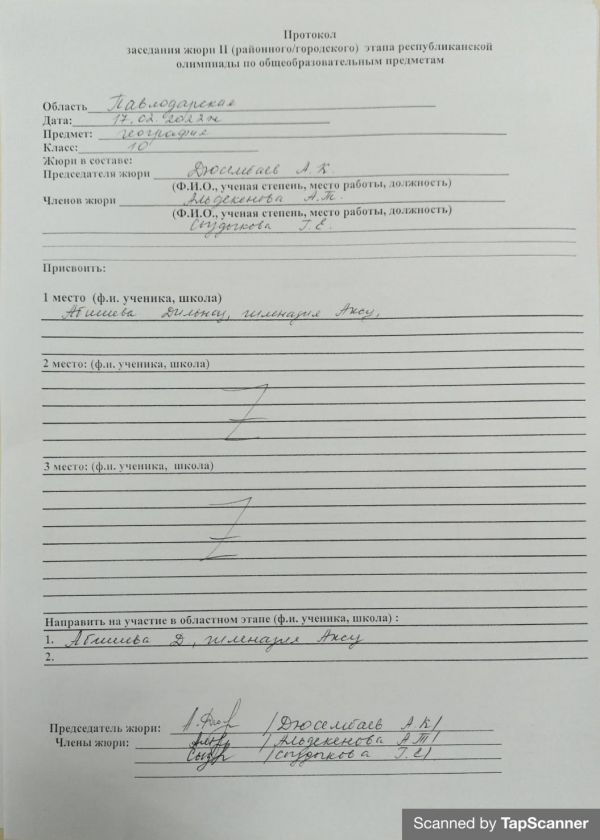 Протокол
заседания жюри II (районного/городского) этапа республиканской
олимпиады по общеобразовательным предметам
Область Павлодарская
Дата: 17.02.2022 ж
Предмет: география
Класс: 10
Жюри в составе:
Председателя жюри Дюсембаев А.К.
(Ф.И.О., ученая степень, место работы, должность)
Членов жюри Альдекенова А.Т.
(Ф.И.О., ученая степень, место работы, должность)
Сыздыкова Г.Е.
Присвоить:
1 место (ф.и. ученика, школа)
Абишева Дильназ, гимназия Аксу,
2 место: (ф.и. ученика, школа)
3 место: (ф.и. ученика, школа)
Направить на участие в областном этапе (ф.и. ученика, школа) :
1. Абишева Д, гимназия Аксу
2.
Председатель жюри: /Дюсембаев А.К/
Члены жюри: /Альдекенова А.Т/
/Сыздыкова Г.Е/
Scanned by TapScanner